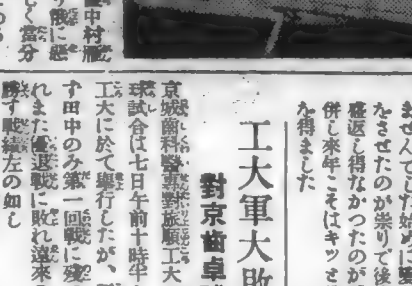 ませんでした始めに
をさせたのが祟りで後
盛返し得なかつたのが
併し來年こそはキツと
を得ました
工大軍大敗
對京齒卓
京城齒科醫專對旅順工大
球試合は七日午前十時半
工大に於て擧行したが、
子田中のみ第一回戰に殘
れまた優退戰に敗れ遠來の
勝す戰績左の如し
中村雁
り俄に惡
どく當分